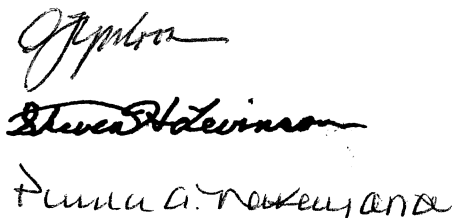 Steven H Levinson
Paula A. Nakayama